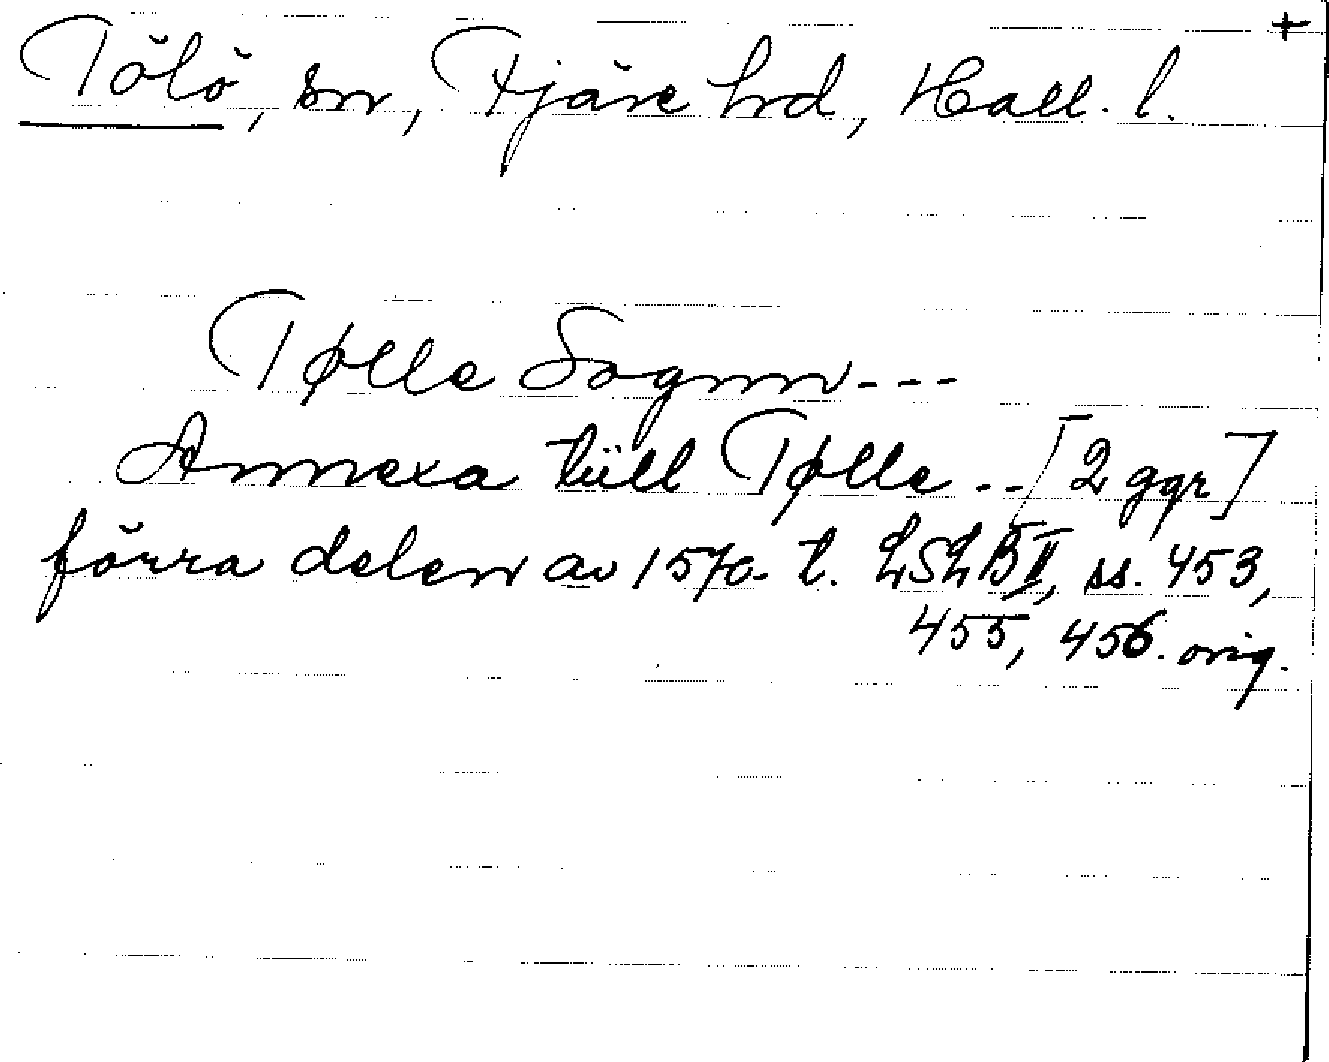 +
Tölö, sn, Fjäre hd, Hall. l.
Tølle Sognn---
Annexa tiill Tølle .. [2 ggr]
förra delen av 1570-t. LSLB II, ss. 453,
455, 456. orig.